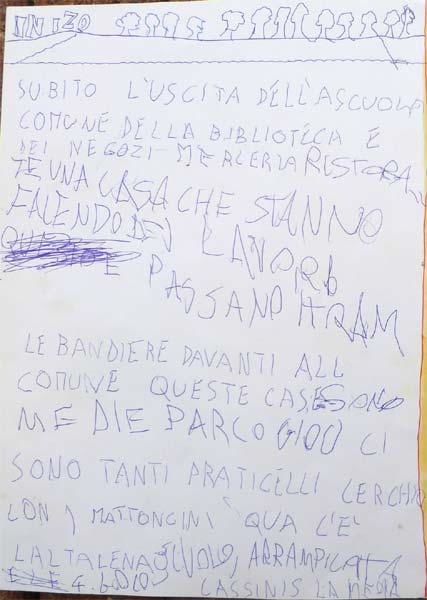 INIZO
SUBITO L'USCITA DELL'ASCUOLA
COMUNE DELLA BIBLIOTECA E
DEI NEGOZI MERCERIA RISTORAN
TE UNA CASA CHE STANNO
FACENDO DEI LAVORI
E PASSANO I TRAM
LE BANDIERE DAVANTI ALL
COMUNE QUESTE CASE SONO
MEDIE PARCO CI
SONO TANTI PRATICELLI CERCHIO
CON I MATTONCINI QUA C'È
LALTALENA SCIVOLO, ARRAMPICATA
CASSINIS LA MEDIA